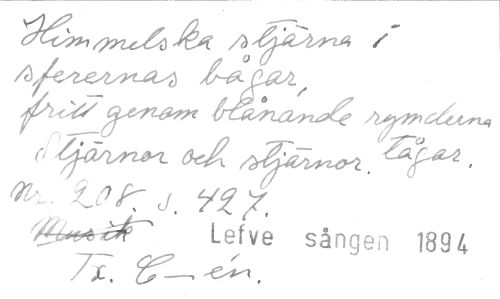 Himmelska stjärna i
sferernas bågar,
fritt genom blånande rymderna
stjärnor och stjärnor. tågar.
nr. 208. s. 427.
Musik Lefve sången 1894
Tx. C—én.